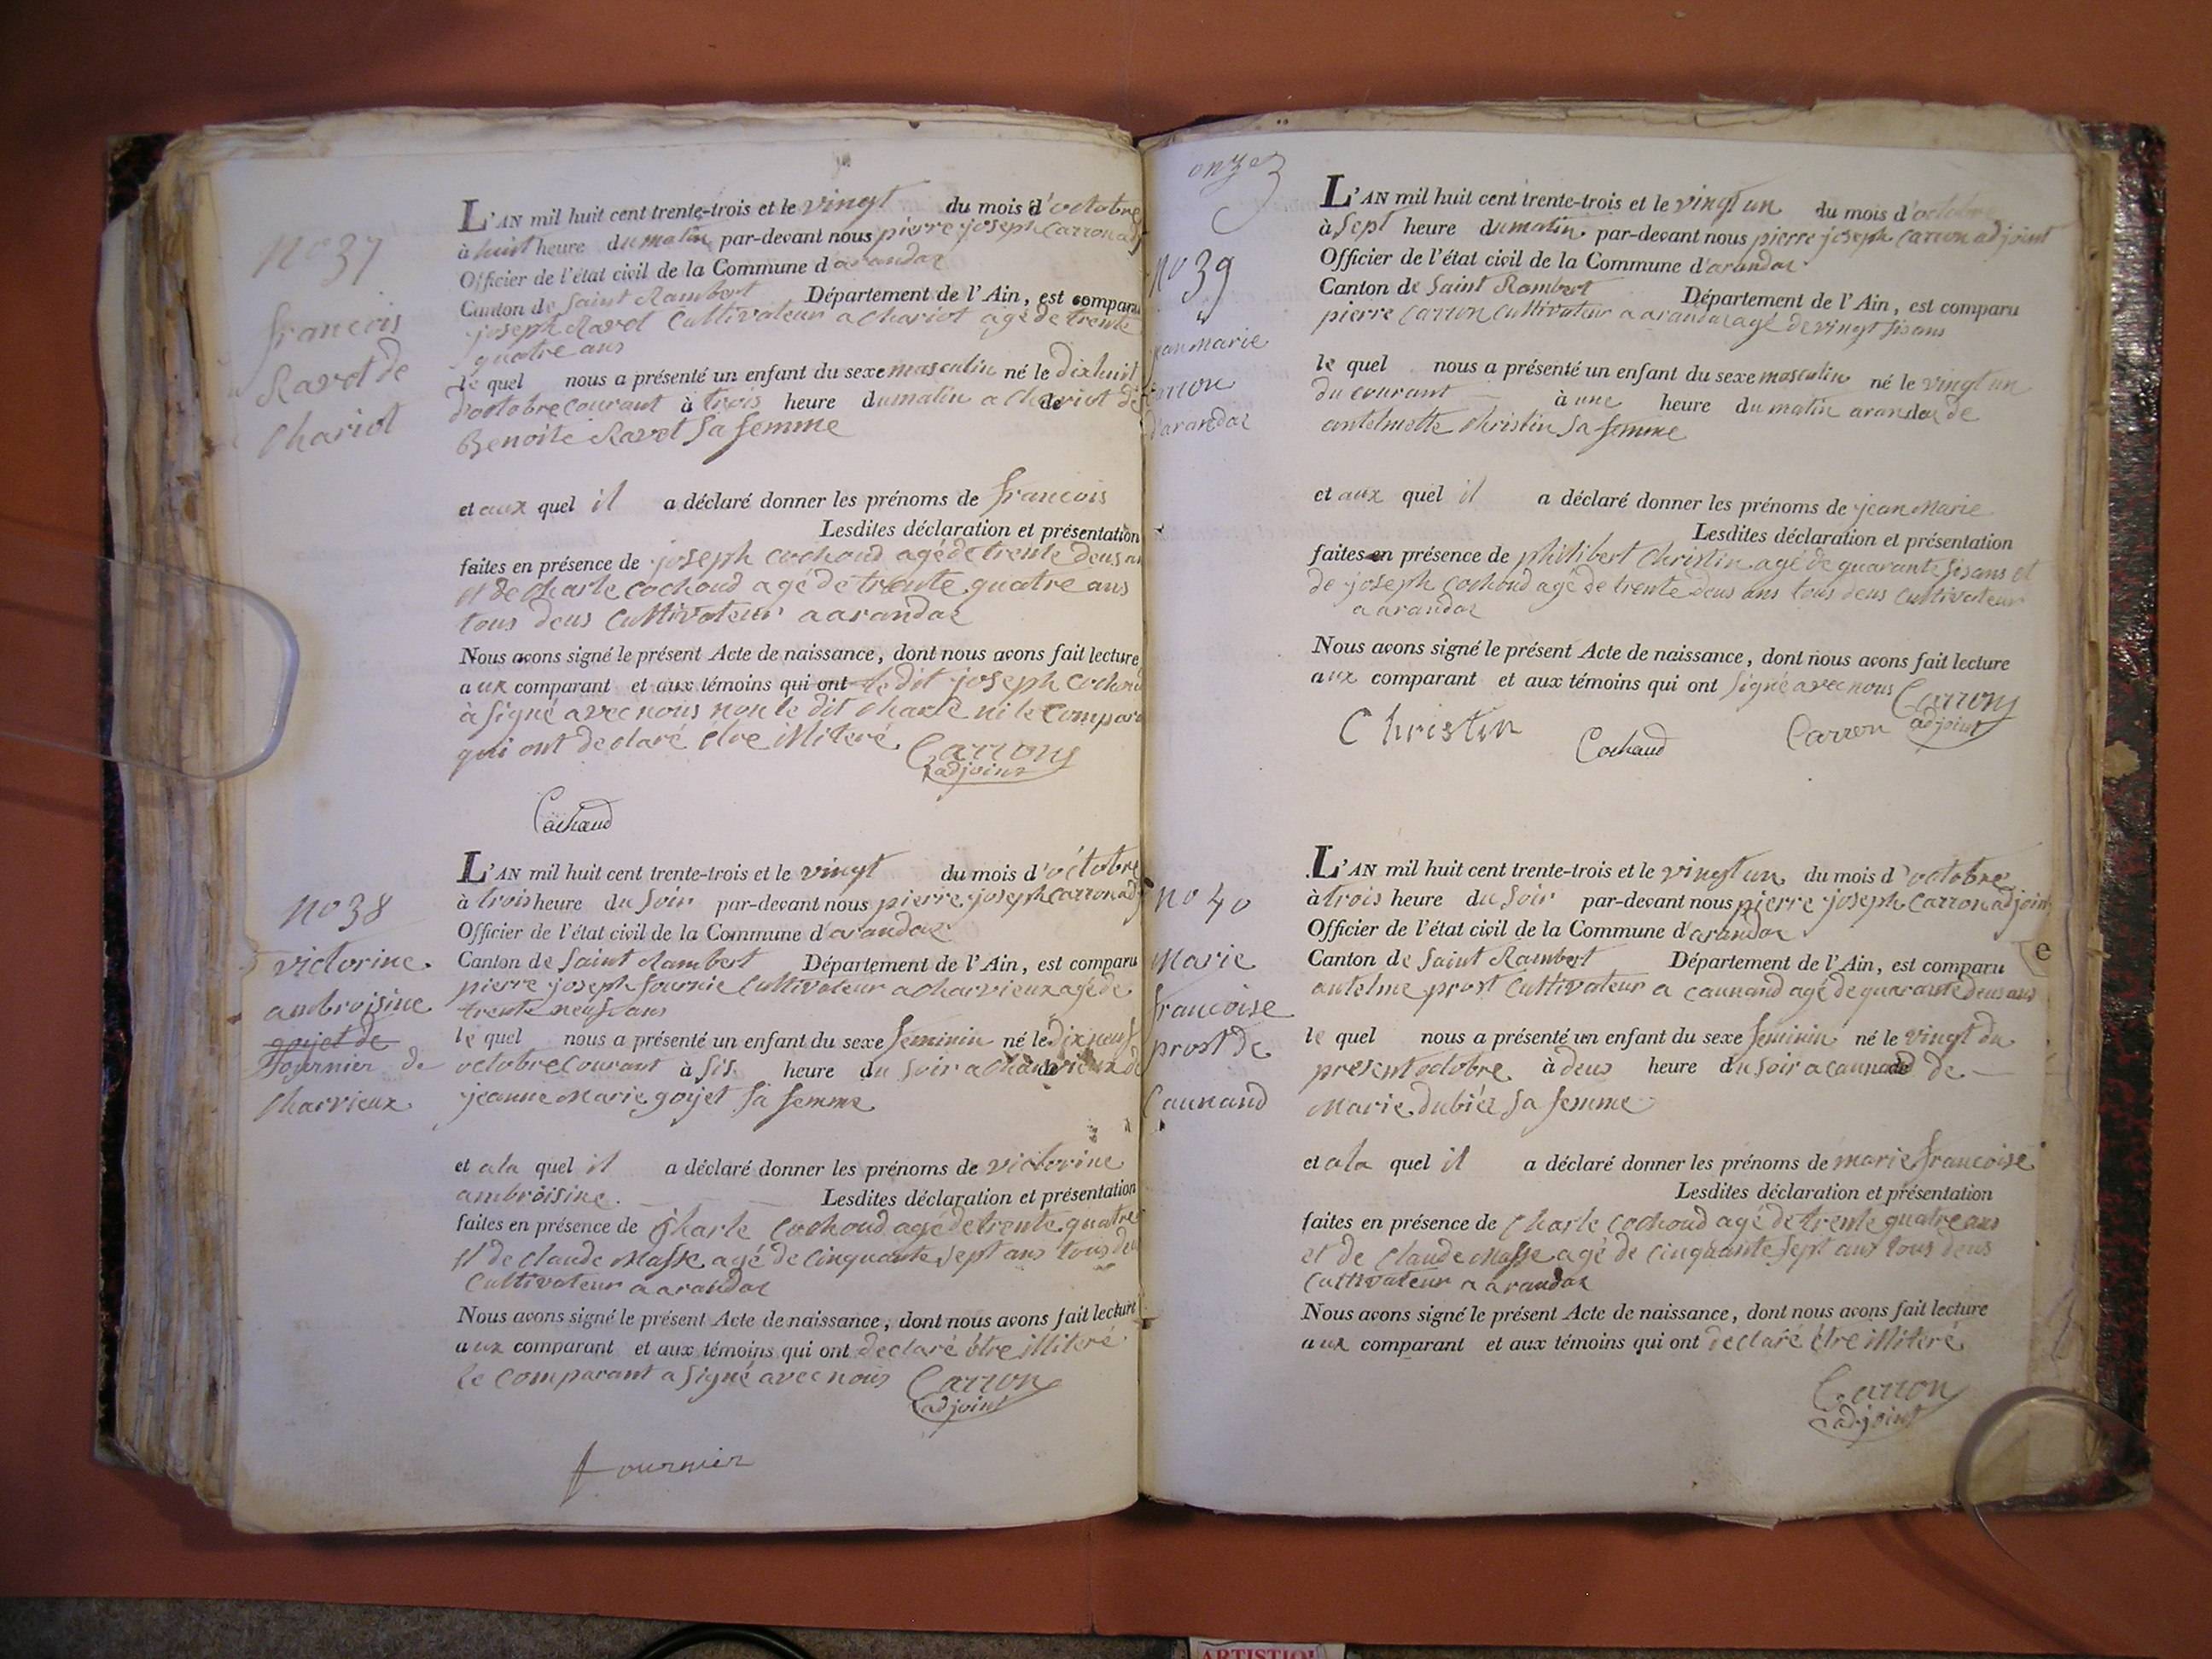 no 37
francois
Ravet de
Chariot
L'AN mil huit cent trente-trois et le vingt du mois d'octobre
à huit heure du matin par-devant nous pierre joseph Carron adj
Officier de l'état civil de la Commune d'arandas
Canton de Saint Rambert Département de l'Ain, est comparu
joseph Ravet Cultivateur a Chariot agé de trente
quatre ans
le quel nous a présenté un enfant du sexe masculin né le dixhuit
d'octobre courant à trois heure du matin a Chariot de
Benoite Ravet sa femme
et aux quel il a déclaré donner les prénoms de francois
Lesdites déclaration et présentation
faites en présence de joseph Cochoud agé de trente deus an
et de Charle Cochoud agé de trente quatre ans
tous deus Cultivateur a arandas
Nous avons signé le présent Acte de naissance, dont nous avons fait lecture
aux comparant et aux témoins qui ont le dit joseph Cochoud
à signé avec nous non le dit Charle ni le compara
qui ont declaré être illiteré Carron
adjoint
Cochaud
no 38
victorine
ambroisine
goyet de
Fournier de
Charvieux
L'AN mil huit cent trente-trois et le vingt du mois d'octobre
à trois heure du soir par-devant nous pierre joseph Carron adj
Officier de l'état civil de la Commune d'arandas
Canton de Saint Rambert Département de l'Ain, est comparu
pierre joseph fournie Cultivateur a Charvieux agé de
trente neuf ans
le quel nous a présenté un enfant du sexe feminin né le dix neuf
octobre courant à sis heure du soir a Charvieux de
jeanne Marie goyet sa femme
et a la quel il a déclaré donner les prénoms de victorine
ambroisine. Lesdites déclaration et présentation
faites en présence de Charle Cochoud agé de trente quatre
et de Claude Masse agé de cinquante sept ans tous deu
Cultivateur a arandas
Nous avons signé le présent Acte de naissance, dont nous avons fait lecture
aux comparant et aux témoins qui ont declaré être illiteré
le comparant a signé avec nous Carron
adjoint
fournier
onze
no 39
jean marie
Carron
d'arandas
L'AN mil huit cent trente-trois et le vingt un du mois d'octobre
à sept heure du matin par-devant nous pierre joseph Carron adjoint
Officier de l'état civil de la Commune d'arandas
Canton de Saint Rambert Département de l'Ain, est comparu
pierre Carron Cultivateur a arandas agé de vingt sis ans
le quel nous a présenté un enfant du sexe masculin né le vingt un
du courant à une heure du matin arandas de
antelmette Christin sa femme
et aux quel il a déclaré donner les prénoms de jean Marie
Lesdites déclaration et présentation
faites en présence de philibert Christin agé de quarante sis ans et
de joseph Cochoud agé de trente deus ans tous deus Cultivateur
a arandas
Nous avons signé le présent Acte de naissance, dont nous avons fait lecture
aux comparant et aux témoins qui ont signé avec nous Carron
adjoint
Christin Cochaud Carron
no 40
Marie
francoise
prost de
Caunand
L'AN mil huit cent trente-trois et le vingt un du mois d'octobre
à trois heure du soir par-devant nous pierre joseph Carron adjoint
Officier de l'état civil de la Commune d'arandas
Canton de Saint Rambert Département de l'Ain, est comparu
antelme prost Cultivateur a Caunand agé de quarante deus ans
e
le quel nous a présenté un enfant du sexe feminin né le vingt du
present octobre à deus heure du soir a Caunand de
Marie dubiez sa femme
et a la quel il a déclaré donner les prénoms de marie francoise
Lesdites déclaration et présentation
faites en présence de Charle Cochoud agé de trente quatre ans
et de Claude Masse agé de cinquante sept ans tous deus
Cultivateur a arandas
Nous avons signé le présent Acte de naissance, dont nous avons fait lecture
aux comparant et aux témoins qui ont declaré être illiteré
Carron
adjoint